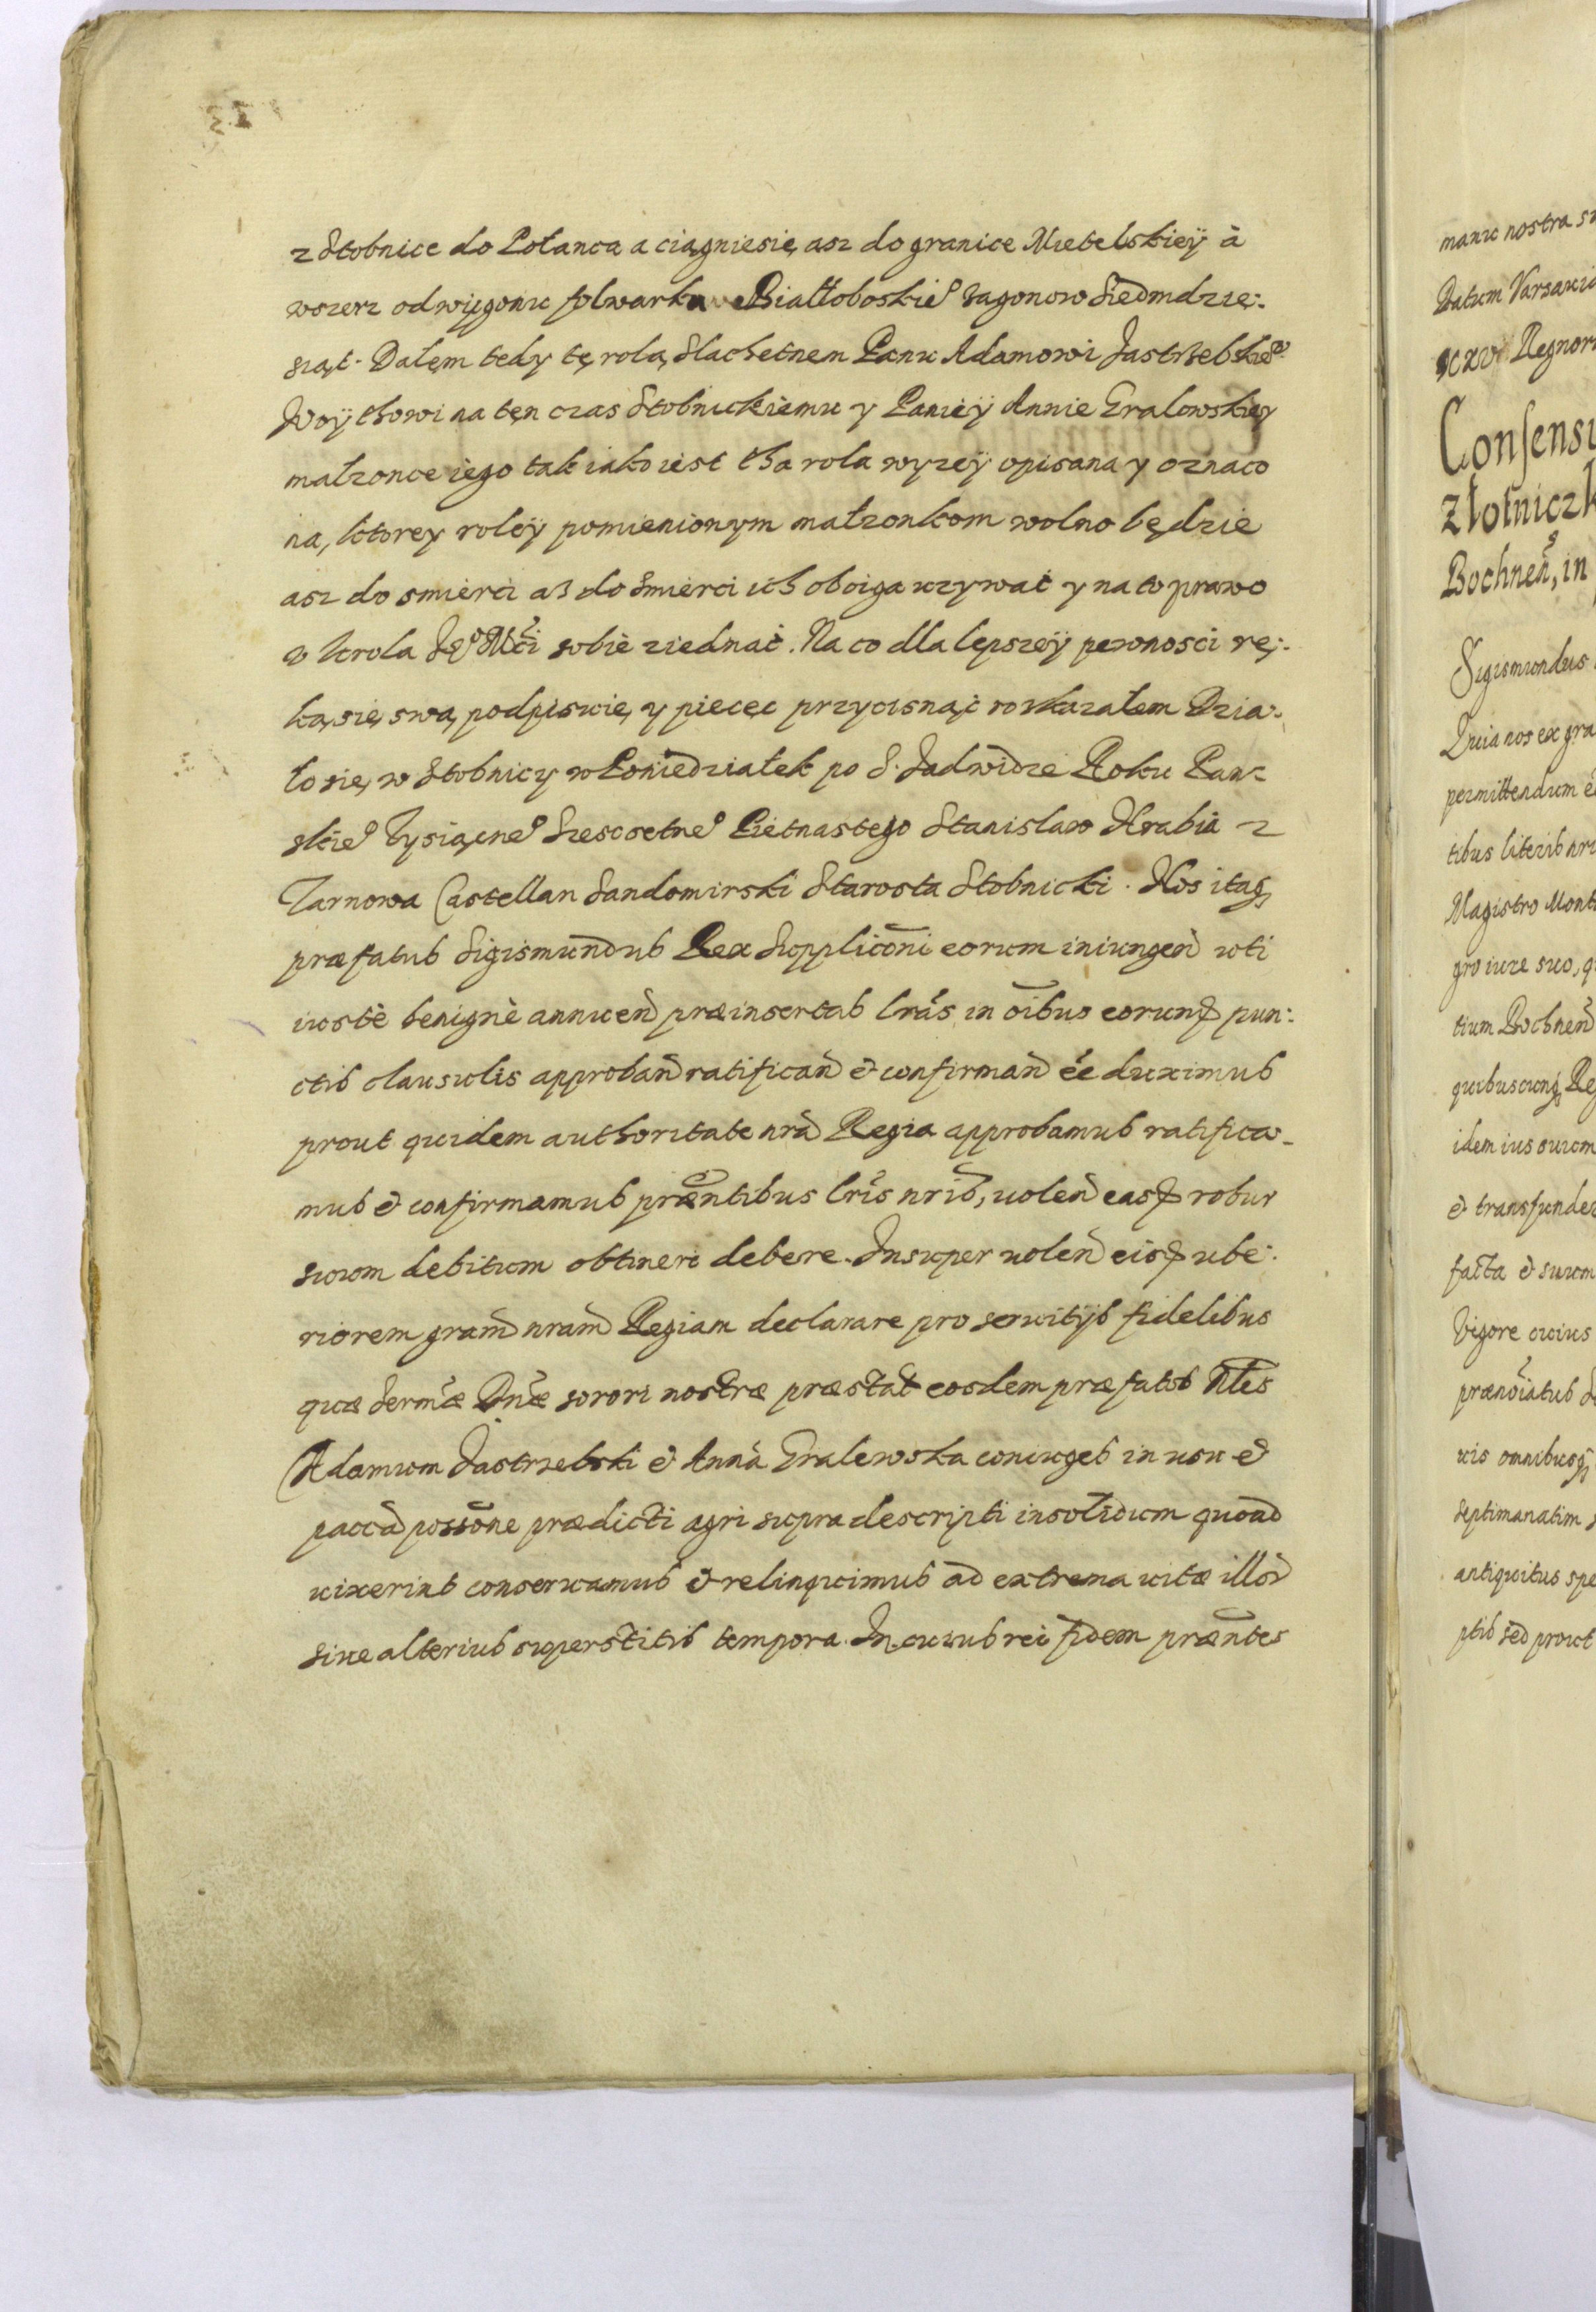 z Stobnice do Połanca a ciągniesię asz do granice Mietelskieÿ à
wszerz od wÿgonu folwarku Białłoboskie͡o zagonow Siedmdzie:
siąt. Dałem tedy tę rolą Slachetnem Panu Adamowi Jastrzebskie͡o
Woÿthowi na tęn czas Stobnickiemu y Panieÿ Annie Gralowskiey
małzonce iego tak iako iest tha rola wyzeÿ opisana y oznaco
na, ktorey roleÿ pomienionym małzonkom wolno będzie
asz do smierci aß do smierci ich oboiga uzywać y na to prawo
v Krola Je͡o Mc̃i sobie ziednać. Na co dla lepszeÿ pewnosci rę:
ką się swą podpisuię y piecęc przycisnąć roskazałem Dzia:
ło się w Stobnicy w Poniedziałek po S. Jadwidze Roku Pan:
skie͡o Tysiącne͡o Szescsetne͡o Pietnastego Stanislaw Hrabia z
Tarnowa Castellan Sandomirski Starosta Stobnicki. Nos itaq
præfatus Sigismundus Rex Supplicõni eorum iniungeñ uti
iustè benignè annueñ præinsertas lrãs in oĩbus eorumq pun:
ctis clausulis approbañ ratificañ & confirmañ eẽ duximus
prout quidem authoritate nrã Regia approbamus ratifica-
mus & confirmamus præñtibus lrĩs nrĩs, uoleñ easq robur
suum debitum obtinere debere. Insuper uoleñ eisq ube:
riorem gram̃ nram̃ Regiam declarare pro seruitijs fidelibus
quæ Serm̃æ Dnæ̃ sorori nostræ præstat eosdem præfatos Nles̃
Adamum Jastrzebski & Annã Gralewska coniuges in usu &
paccã possõne prædicti agri supradescripti insolidum quoad
uixerint conseruamus & relinquimus ad extrema uitæ illor̃
siue alterius superstitis tempora. In cuius rei fidem præñtes
manu nostra
Datum Varsauiæ
xxv Regnor
Consensu
złotniczk
Bochneñ, in
Sigismundus
Quia nos ex gra
permittendum
tibus literis nr
Magistro Mont
gro iure suo, q
tium Bochneñ
quibuscunq Re
idem ius suum
& transfunde
facta & suum
Vigore cuius
prænoĩatus
uis omnibusq
septimanatim
antiquitus spe
ptis sed prout